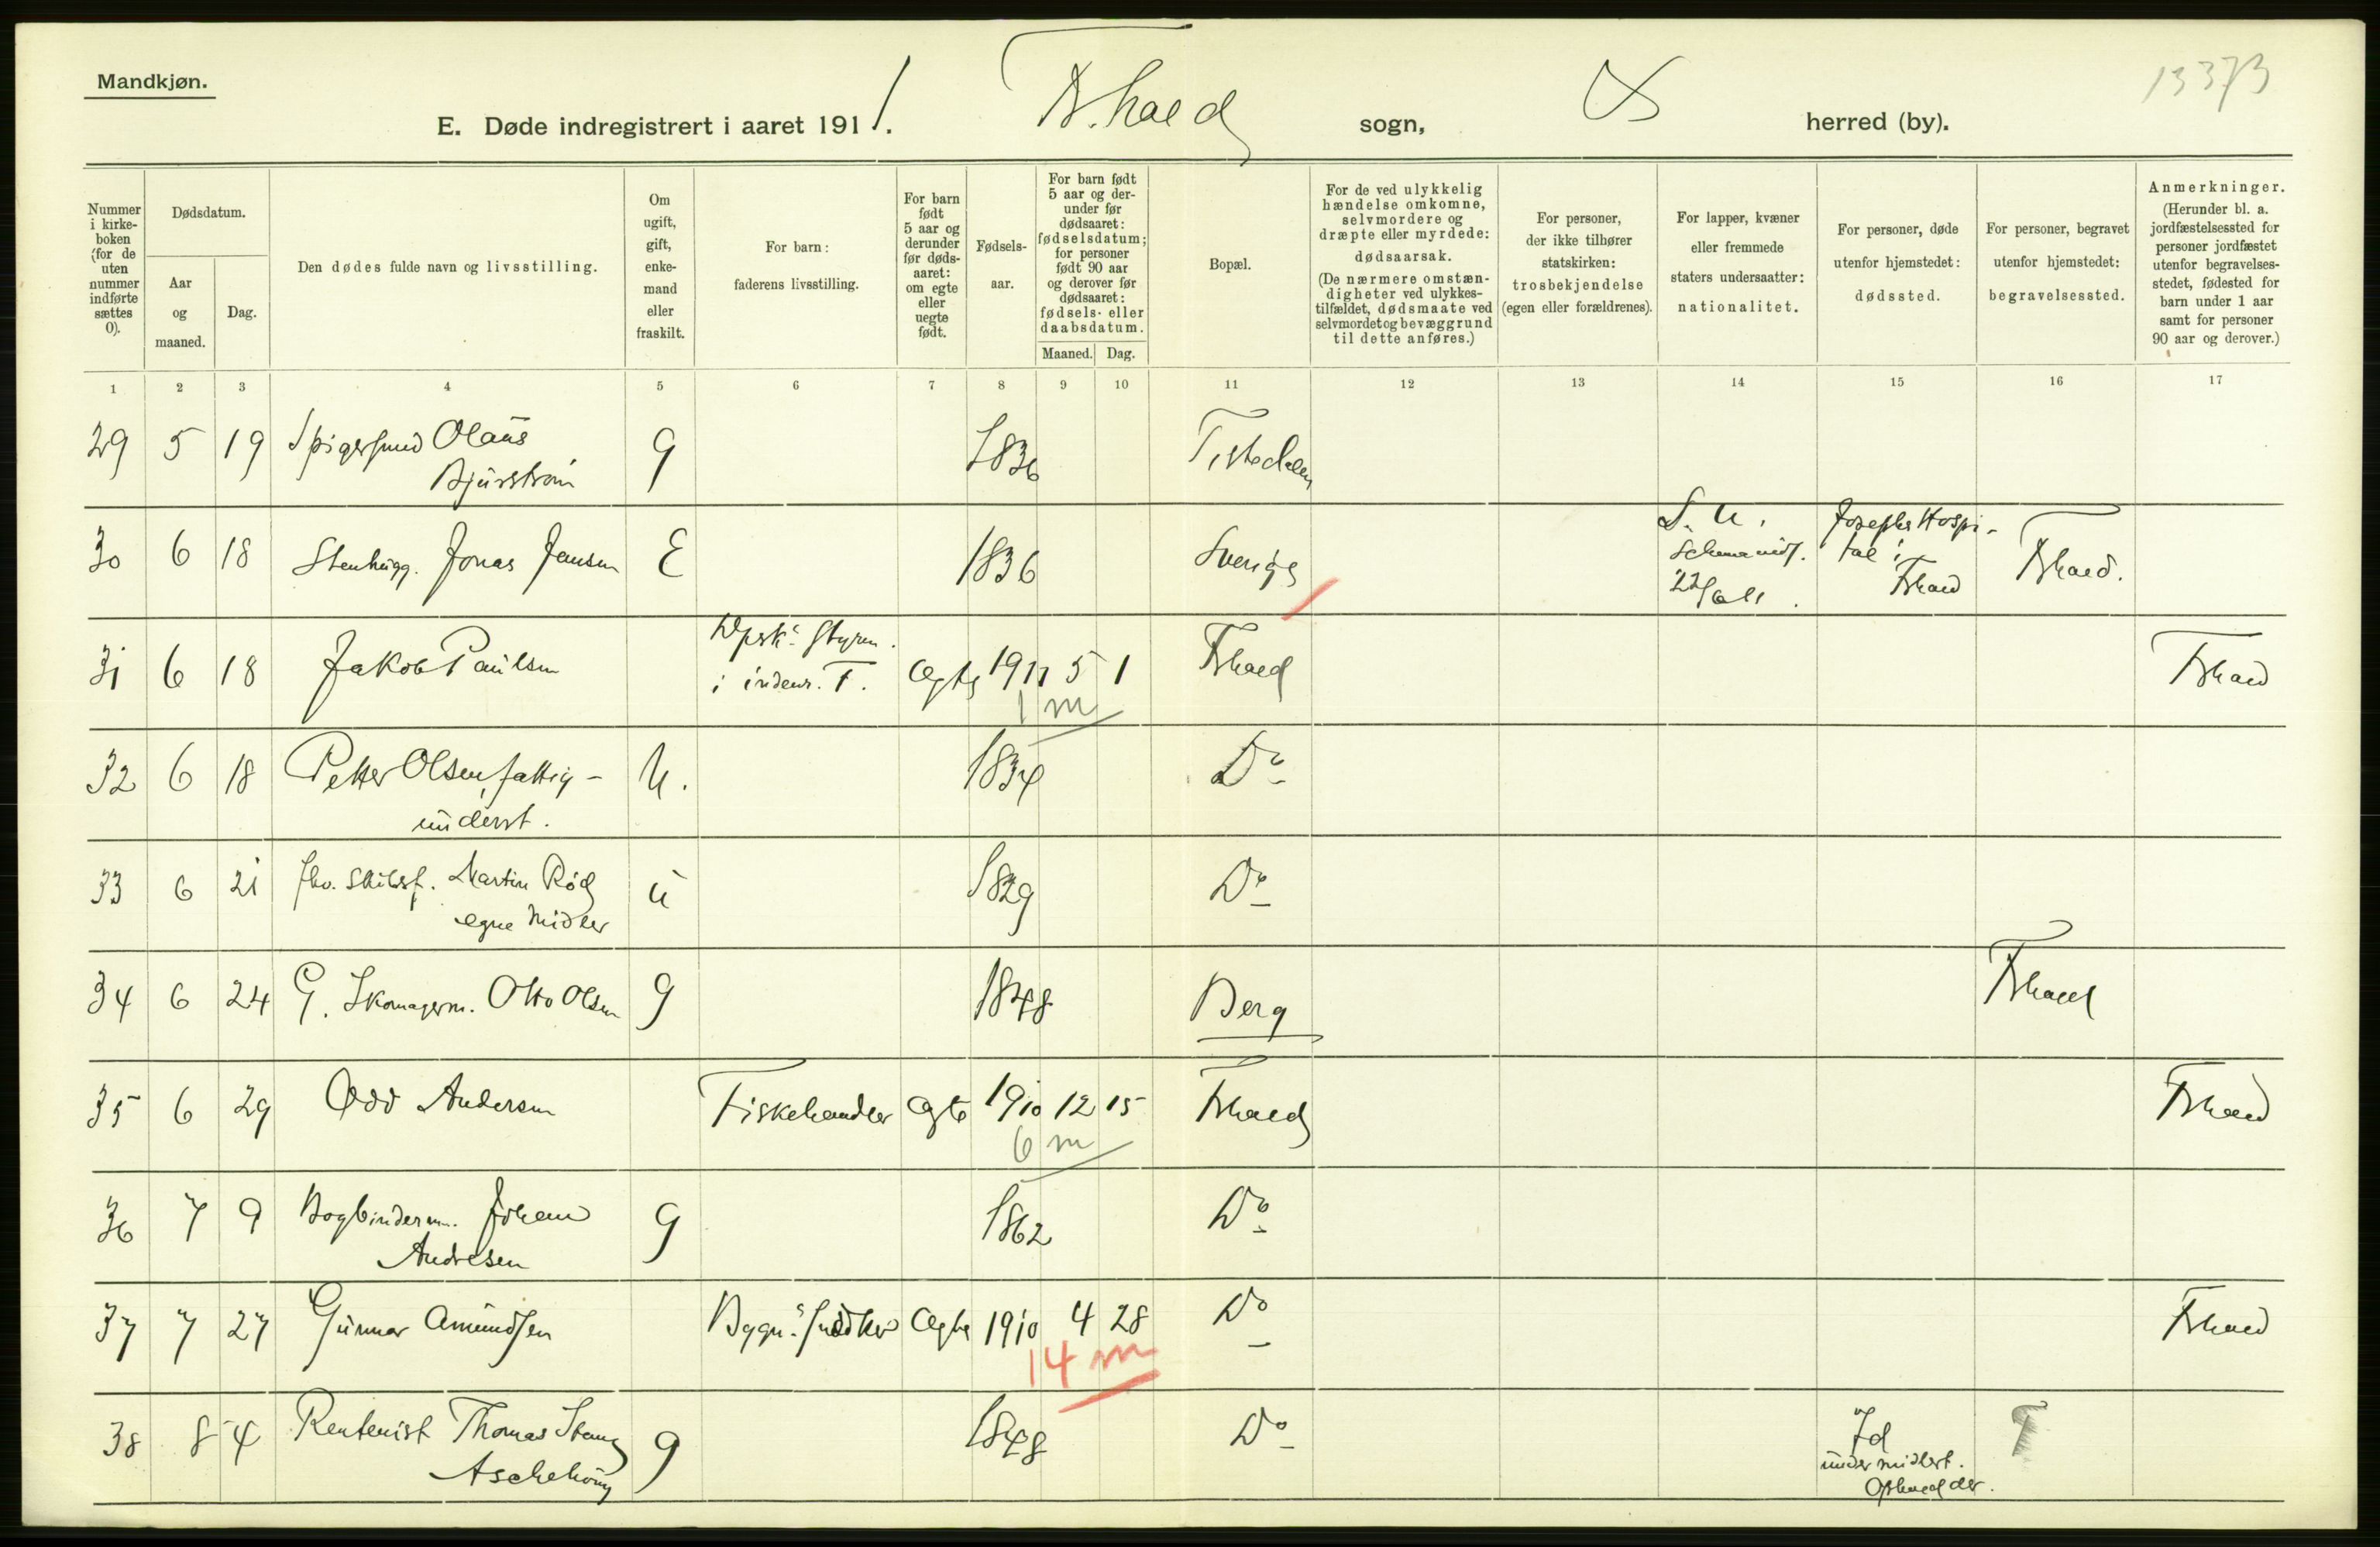 Mandkjøn.
13373
E. Døde indregistrert i aaret 1911. Fr.hald sogn, herred (by).
Nummer i kirke-boken (for de uten nummer indførte sættes 0).
Dødsdatum.
Aar og maaned.
Dag.
Den dødes fulde navn og livsstilling.
Om ugift, gift, enke-mand eller fraskilt.
For barn: faderens livsstilling.
For barn født 5 aar og derunder før døds-aaret: om egte eller uegte født.
Fødsels-aar.
For barn født 5 aar og der-under før dødsaaret: fødselsdatum; for personer født 90 aar og derover før dødsaaret: fødsels- eller daabsdatum.
Maaned. Dag.
Bopæl.
For de ved ulykkelig hændelse omkomne, selvmordere og dræpte eller myrdede: dødsaarsak. (De nærmere omstæn-digheter ved ulykkes-tilfældet, dødsmaate ved selvmordet og bevæggrund til dette anføres.)
For personer, der ikke tilhører statskirken: trosbekjendelse (egen eller forældrenes).
For lapper, kvæner eller fremmede staters undersaatter: nationalitet.
For personer, døde utenfor hjemstedet: dødssted.
For personer, begravet utenfor hjemstedet: begravelsessted.
Anmerkninger. (Herunder bl. a. jordfæstelsessted for personer jordfæstet utenfor begravelses-stedet, fødested for barn under 1 aar samt for personer 90 aar og derover.)
1 2 3 4 5 6 7 8 9 10 11 12 13 14 15 16 17
29 5 19 Spigersmed Olaus g 1836 Tistedalen
Bjurström
30 6 18 Stenhugg. Jonas Jansen E 1836 Sverige S. U. Josephs Hospi- Fr.hald.
22/6 11 tal i
Fr.hald
31 6 18 Jakob Paulsen Styrm. Egte 1911 5 1 Fr.hald Fr.hald
i indenr. F.
1 m
32 6 18 Petter Olsen, fattig- U. 1834 Do
underst.
33 6 21 fhv. Skibsf. Martin Rød u 1829 Do
egne Midler
34 6 24 G. Skomagerm. Otto Olsen g 1848 Berg Fr.hald
35 6 29 Odd Andersen Fiskehandler Egte 1910 12 15 Fr.hald Fr.hald
6 m
36 7 9 Bogbinderm. Johan g 1862 Do
Andresen
37 7 27 Gunnar Amundsen Bygn.s Snedker Egte 1910 4 28 Do Fr.hald
14 m
38 8 4 Rentenist Thomas Stang g 1848 Do Id F
Aschehoug under midlert.
Ophold der.